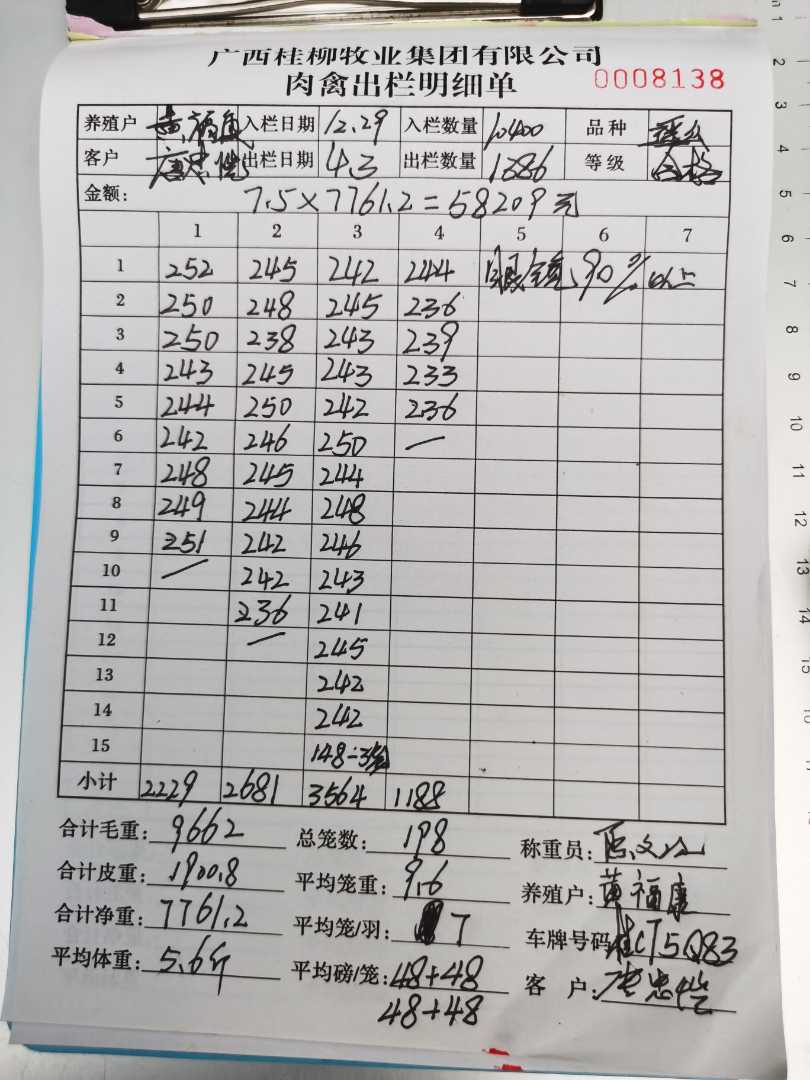 广西桂柳牧业集团有限公司
肉禽出栏明细单 0008138
养殖户 黄福康 入栏日期 12.29 入栏数量 10400 品种
客户 唐忠 出栏日期 4.3 出栏数量 1386 等级 合格
金额: 7.5×7761.2=58209元
1 2 3 4 5 6 7
1 252 245 242 244 90%以上
2 250 248 245 236
3 250 238 243 239
4 243 245 243 233
5 244 250 242 236
6 242 246 250 —
7 248 245 244
8 249 244 248
9 251 242 246
10 — 242 243
11 236 241
12 — 245
13 242
14 242
15 148-3
小计 2229 2681 3564 1188
合计毛重: 9662 总笼数: 198 称重员:
合计皮重: 1900.8 平均笼重: 9.6 养殖户: 黄福康
合计净重: 7761.2 平均笼/羽: 7 车牌号码 桂CT5Q83
平均体重: 5.6斤 平均磅/笼: 48+48 客户: 唐忠
48+48